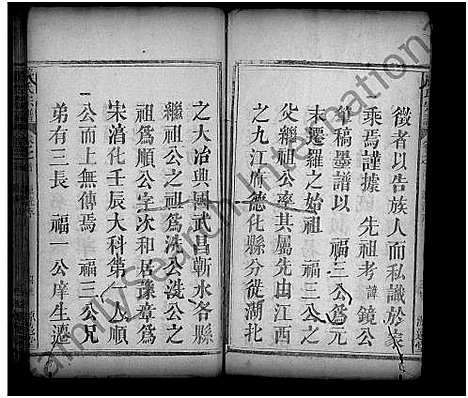 徵者以告族人而私識於家
乘焉謹據　先祖考譜鏡公
筆稿墨譜以　福三公爲元
末遷羅之始祖　福三公之
父繼祖公率其屬先由江西
之九江府德化縣分徙湖北
之大冶興國武昌蘄水各縣
繼祖公之祖爲洗公洗公之
祖爲順公字次和居豫章爲
宋淯化壬辰大科第一人順
公而上無傳焉　福三公兄
弟有三長　福一公庠生遷
FamilySearch International